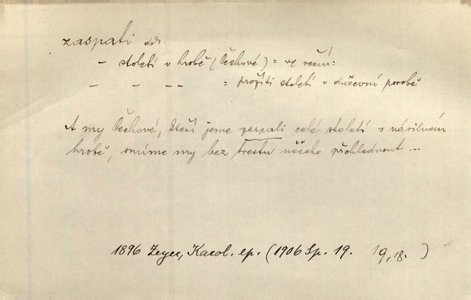 zaspati dok.
– století v hrobě (Čechové) = ve věčn:
– – – – = prožíti století v duševní porobě
A my Čechové, kteří jsme zaspali celé století v násilném
hrobě, smíme my bez trestu něčeho přehlednout ...
1896 Zeyer, Karol. ep. (1906 Sp. 19. 19, 18.)